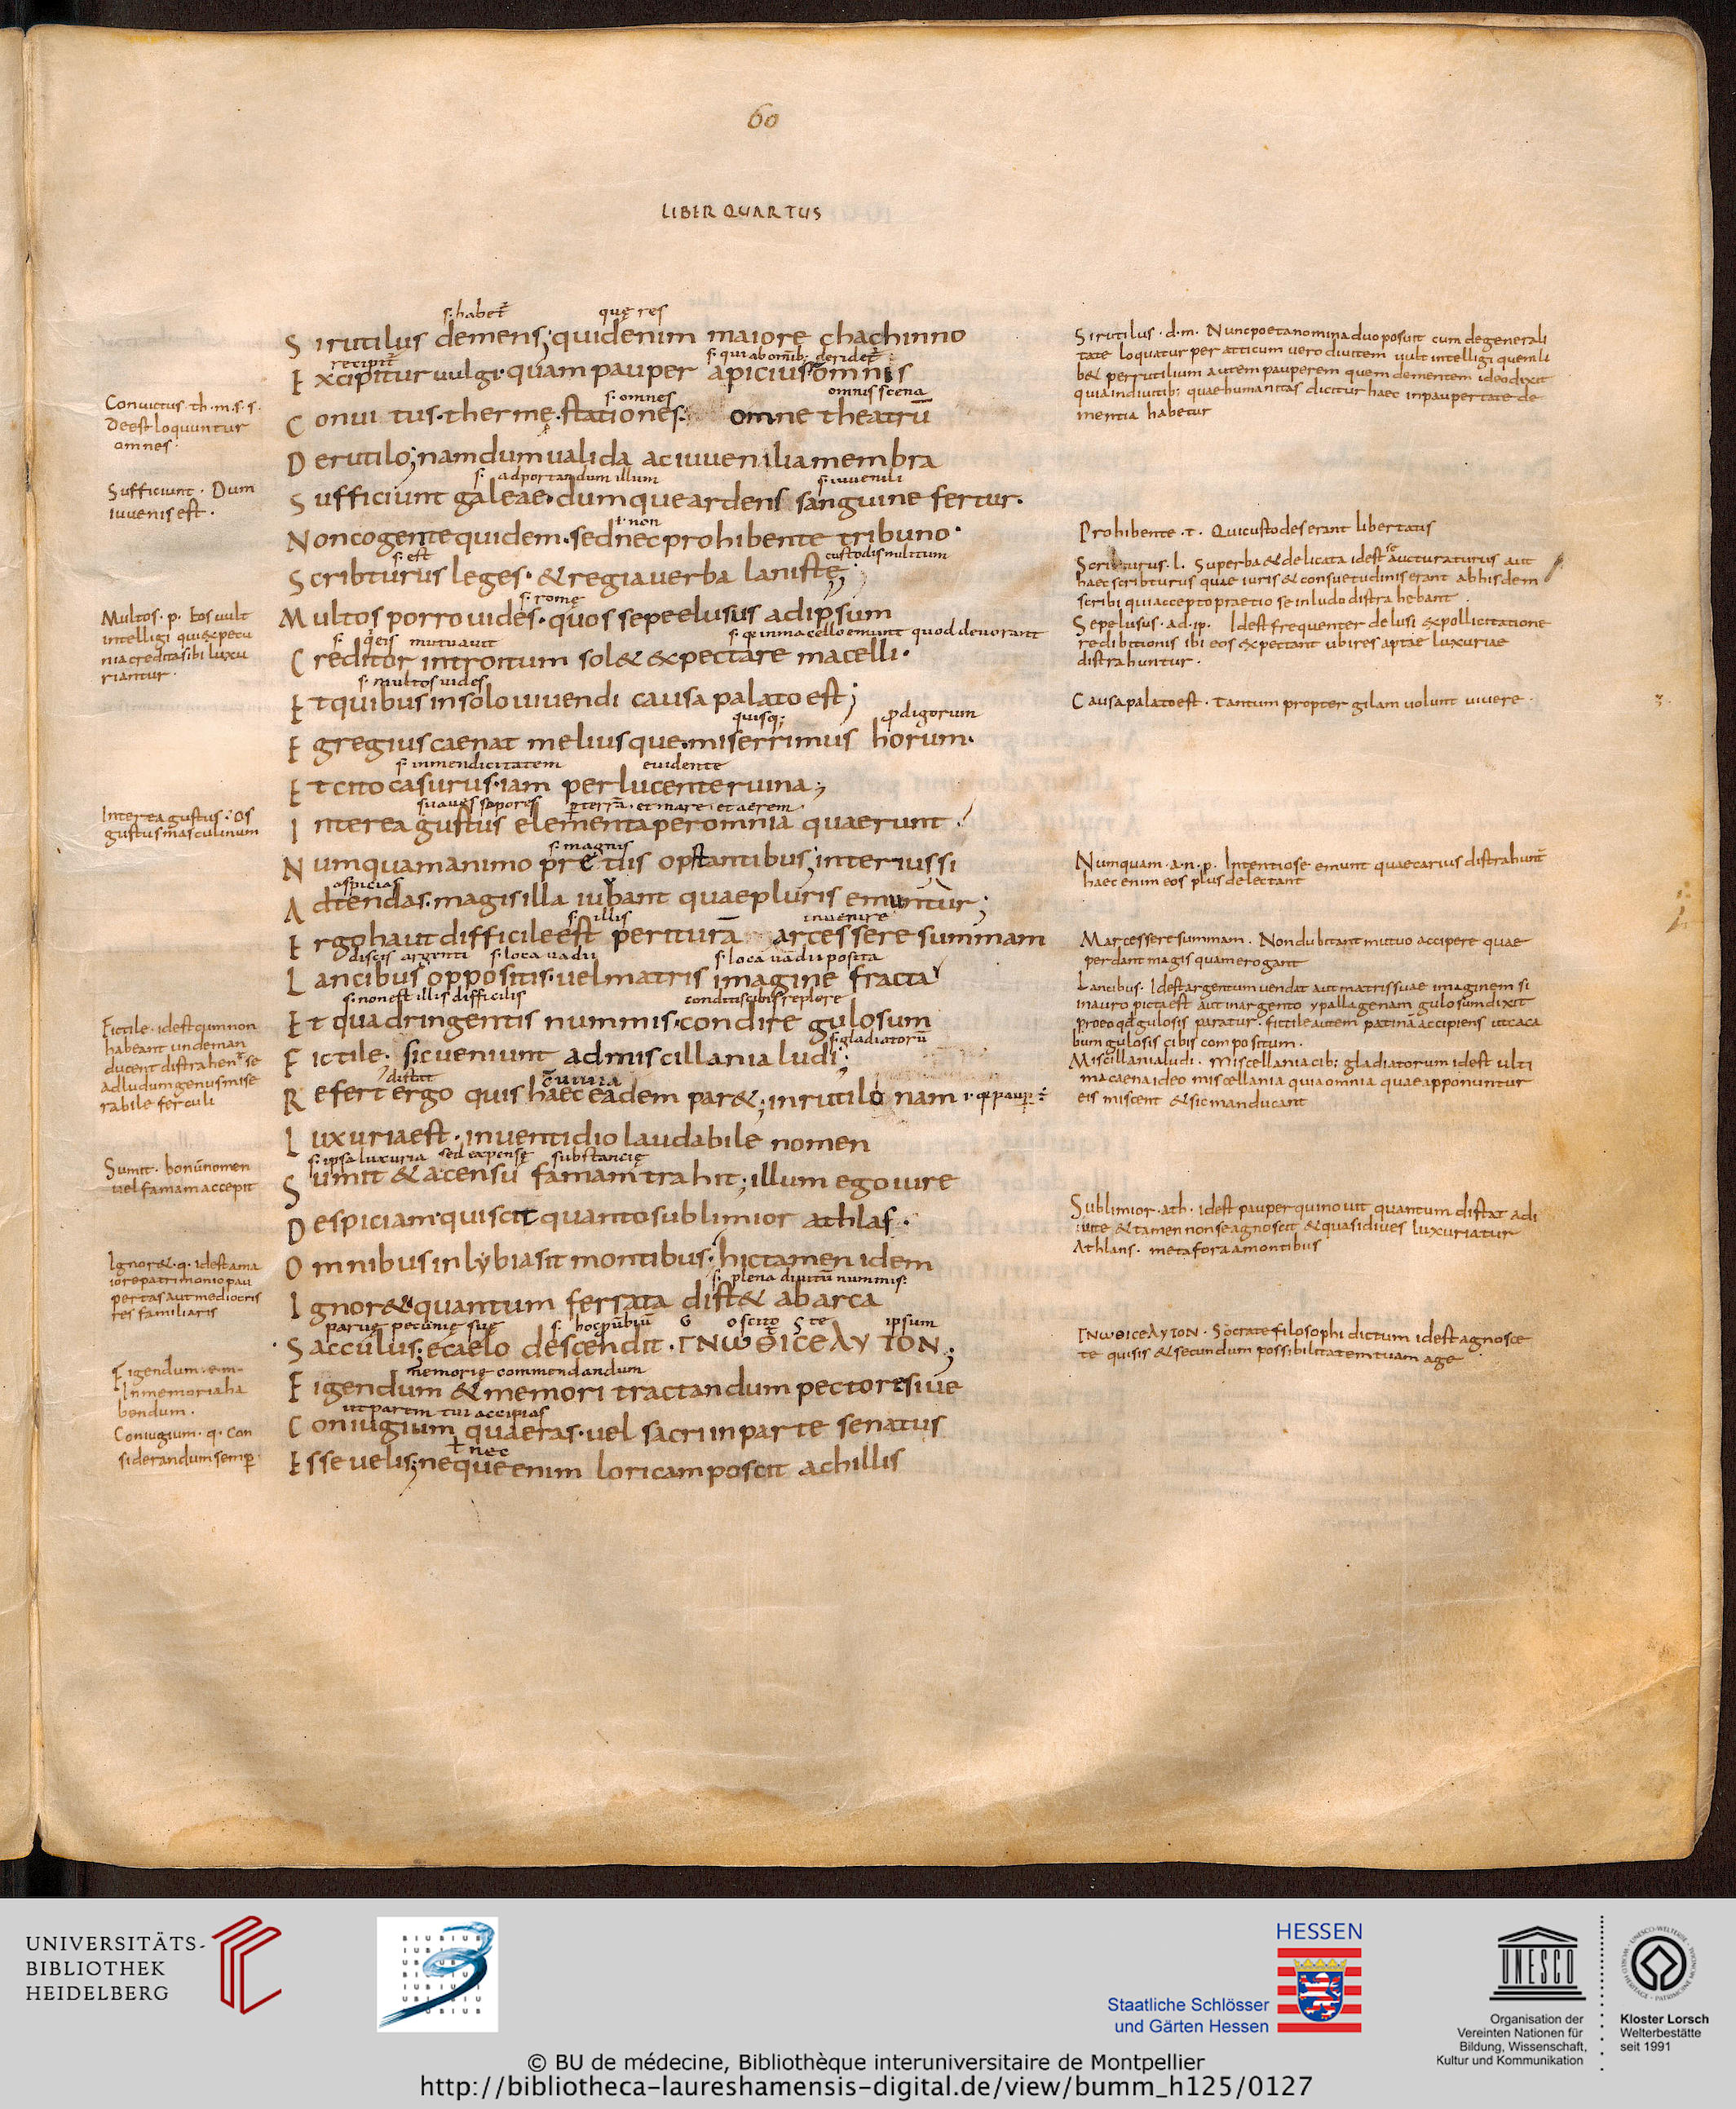 60
LIBER QUARTUS
s. habet
quę res
Si rutilus demens; quid enim maiore chachinno
recipit
s. qui ab omnib; deridet
Excipitur uulgi· quam pauper apicius omnis
s. omnes
omnis scena
Conui tus· thermę· stationes· omne theatrū
De rutilo; nam dum ualida ac iuuenilia membra
s. ad portandum illum
s. iuuenili
Sufficiunt galeae· dumque ardens sanguine fertur·
ł non
Non cogente quidem· sed nec prohibente tribuno·
s. est
custodis militum
Scribturus leges· & regia uerba lanistę;
s. romę
Multos porro uides· quos sepe elusus ad ipsum
mutuauit
in macello emunt quod deuorant
Creditor introitum sol& expectare macelli·
s. multos uides
Et quibus in solo uiuendi causa palato est;
quisq;
prodigorum
Egregius caenat meliusque· miserrimus horum·
s. in mendicitatem
euidente
Et cito casurus· iam perlucente ruina;
suaues sapores
p terrā· et mare· et aerem
Interea gustus elementa per omnia quaerunt
s. magnis
Numquam animo pretiis opstantibus; interius si
aspicias
Adtendas· magis illa iubant quae pluris emuntur;
s. illis
inuenire
Ergo haut difficile est periturā arcessere summam
discis argenti
s. loca uadii
s. loca uadii posita
Lancibus oppositis· uel matris imagine fracta
s. non est illis difficilis
conditis cibis replere
Et quadringentis nummis· condire gulosum
s. gladiatorū
Fictile· sic ueniunt ad miscillania ludi;
distat
Refert ergo quis haec eadem par&; in rutilo nam
Luxuria est· in uentidio laudabile nomen
s. ipsa luxuria sed expensę substancię
Sumit & a censu famam trahit; illum ego iure
Despiciam· qui scit quanto sublimior athlas·
Omnibus in lybia sit montibus· hic tamen idem
s. plena diuitū nummis
Ignor& quantum ferrata dist& ab arca
paruę pecunię suę
ipsum
Sacculus; e caelo descendit· ΓΝωΘΙCΕΛΥΤΟΝ;
memorię commendandum
Figendum & memori tractandum pectore siue
ut partem tui accipias
Coniugium quaeras· uel sacri in parte senatus
ł nec
Esse uelis; neque enim loricam poscit achillis
Conuictus· th· m· s· s·
Deest loquuntur
omnes·
Sufficiunt· Dum
iuuenis est·
Multos· p· Eos uult
intelligi qui ex pecu
nia credita sibi luxu
riantur·
Interea gustus· Os
gustus masculinum
Fictile· id est cum non
habeant unde man
ducent distrahent se
ad ludum genus mise
rabile ferculi
Sumit· bonū nomen
uel famam accepit
Ignor&· q· id est a ma
iore patrimonio pau
pertas aut mediocris
res familiaris
Figendum· e· m·
In memoria ha
bendum·
Coniugium· q· Con
siderandum semp
Si rutilus· d· m· Nunc poeta nomina duo posuit cum de generali
tate loquatur per atticum uero diuitem uult intelligi quemli
b& per rutilium autem pauperem quem dementem ideo dixit
quia in diuitib; quae humanitas dicitur haec in paupertate de
mentia habetur
Prohibente· t· Qui custodes erant libertatis
Scribturus· l· Superba & delicata id est se aucturaturus aut
haec scribturus quae iuris & consuetudinis erant ab his dem
scribi qui accepto praetio se in ludo distrahebant·
Sepe lusus· ad· ip· Id est frequenter delusi ex pollicitatione
redibitionis ibi eos expectant ubi res aptae luxuriae
distrahuntur·
Causa palato est· Tantum propter gilam uolunt uiuere·
Numquam· a· n· p· Intentiose emunt quae carius distrahunt
haec enim eos plus delectant
M arcessere summam· Non dubitant mutuo accipere quae
perdant magis quam erogant
Lancibus· Id est argentum uendat aut matris suae imaginem si
in auro picta est aut in argento ypallagen am gulosum dixit
pro eo qd gulosis paratur· fictile autem patinā accipiens ut caca
bum gulosis cibis compositum·
Miscillania ludi· Miscellania cib; gladiatorum id est ulti
ma caena ideo miscellania quia omnia quae apponuntur
eis miscent & sic manducant
Sublimior· ath· id est pauper qui nouit quantum distat a di
uite & tamen non se agnoscit & quasi diues luxuriatur
Athlans· metafora a montibus
ΓΝωΘΙCΕΛΥΤΟΝ· Socrate filosophi dictum id est agnosce
te quis is & secundum possibilitatem tuam age
UNIVERSITÄTS-
BIBLIOTHEK
HEIDELBERG
HESSEN
Staatliche Schlösser
und Gärten Hessen
UNESCO
Organisation der
Vereinten Nationen für
Bildung, Wissenschaft,
Kultur und Kommunikation
Kloster Lorsch
Welterbestätte
seit 1991
© BU de médecine, Bibliothèque interuniversitaire de Montpellier
http://bibliotheca-laureshamensis-digital.de/view/bumm_h125/0127